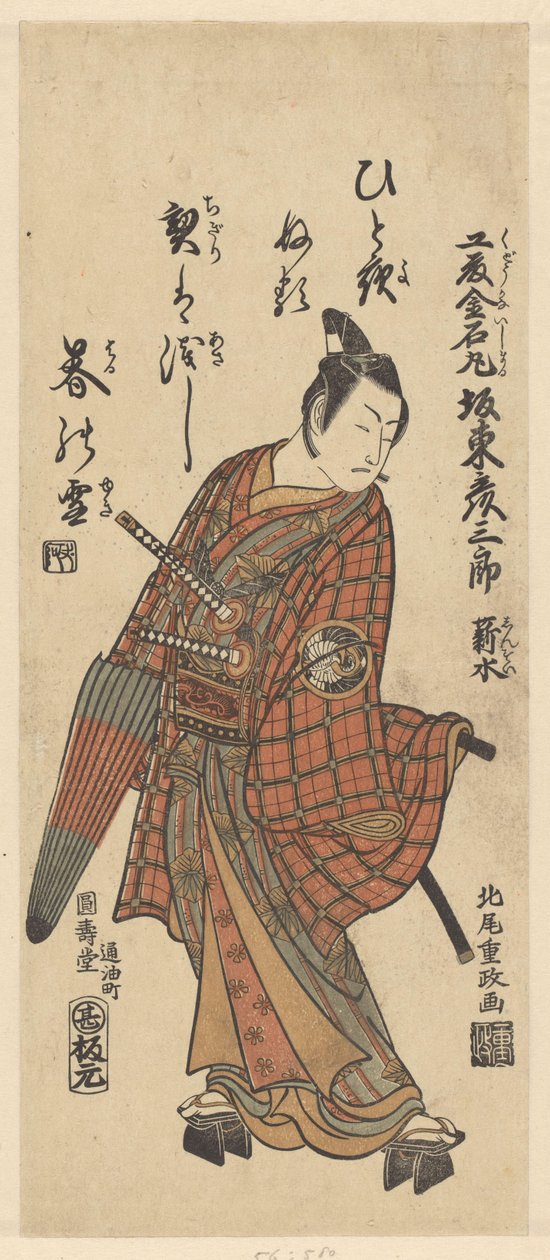 工藤金石丸 坂東彦三郎 薪水
くどうかないしまる
しんすい
ひと夜
よ
契は浅し
ちぎり
あさ
春の雪
はる
ゆき
北尾重政画
重政
通油町
圓壽堂
甚
板元
56:580